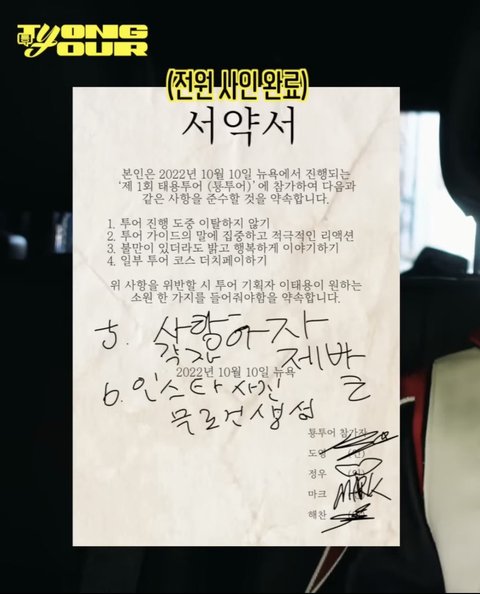 TYONG
YOUR
(전원 사인 완료)
서약서
본인은 2022년 10월 10일 뉴욕에서 진행되는
‘제 1회 태용투어 (툥투어)’에 참가하여 다음과
같은 사항을 준수할 것을 약속합니다.
1. 투어 진행 도중 이탈하지 않기
2. 투어 가이드의 말에 집중하고 적극적인 리액션
3. 불만이 있더라도 밝고 행복하게 이야기하기
4. 일부 투어 코스 더치페이하기
위 사항을 위반할 시 투어 기획자 이태용이 원하는
소원 한 가지를 들어줘야함을 약속합니다.
5. 사랑하자
각자 제발
2022년 10월 10일 뉴욕
6. 인스타 사진
무조건 생성
툥투어 참가자
도영
정우
마크 MARK
해찬